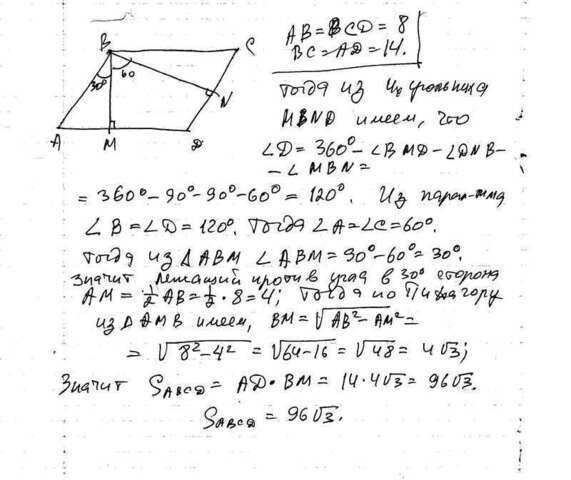 B
C
30°
60
N
A
M
D
AB = CD = 8
BC = AD = 14.
Тогда из 4х угольника
MBND имеем, что
∠D = 360° - ∠BMD - ∠DNB -
- ∠MBN =
= 360° - 90° - 90° - 60° = 120°. Из парал-мма
∠B = ∠D = 120°. Тогда ∠A = ∠C = 60°.
Тогда из ΔABM ∠ABM = 90° - 60° = 30°.
Значит лежащий против угла в 30° сторона
AM = ½ AB = ½ · 8 = 4; Тогда по Пифагору
из ΔAMB имеем, BM = √AB² - AM² =
= √8² - 4² = √64 - 16 = √48 = 4√3;
Значит SABCD = AD · BM = 14 · 4√3 = 96√3.
SABCD = 96√3.